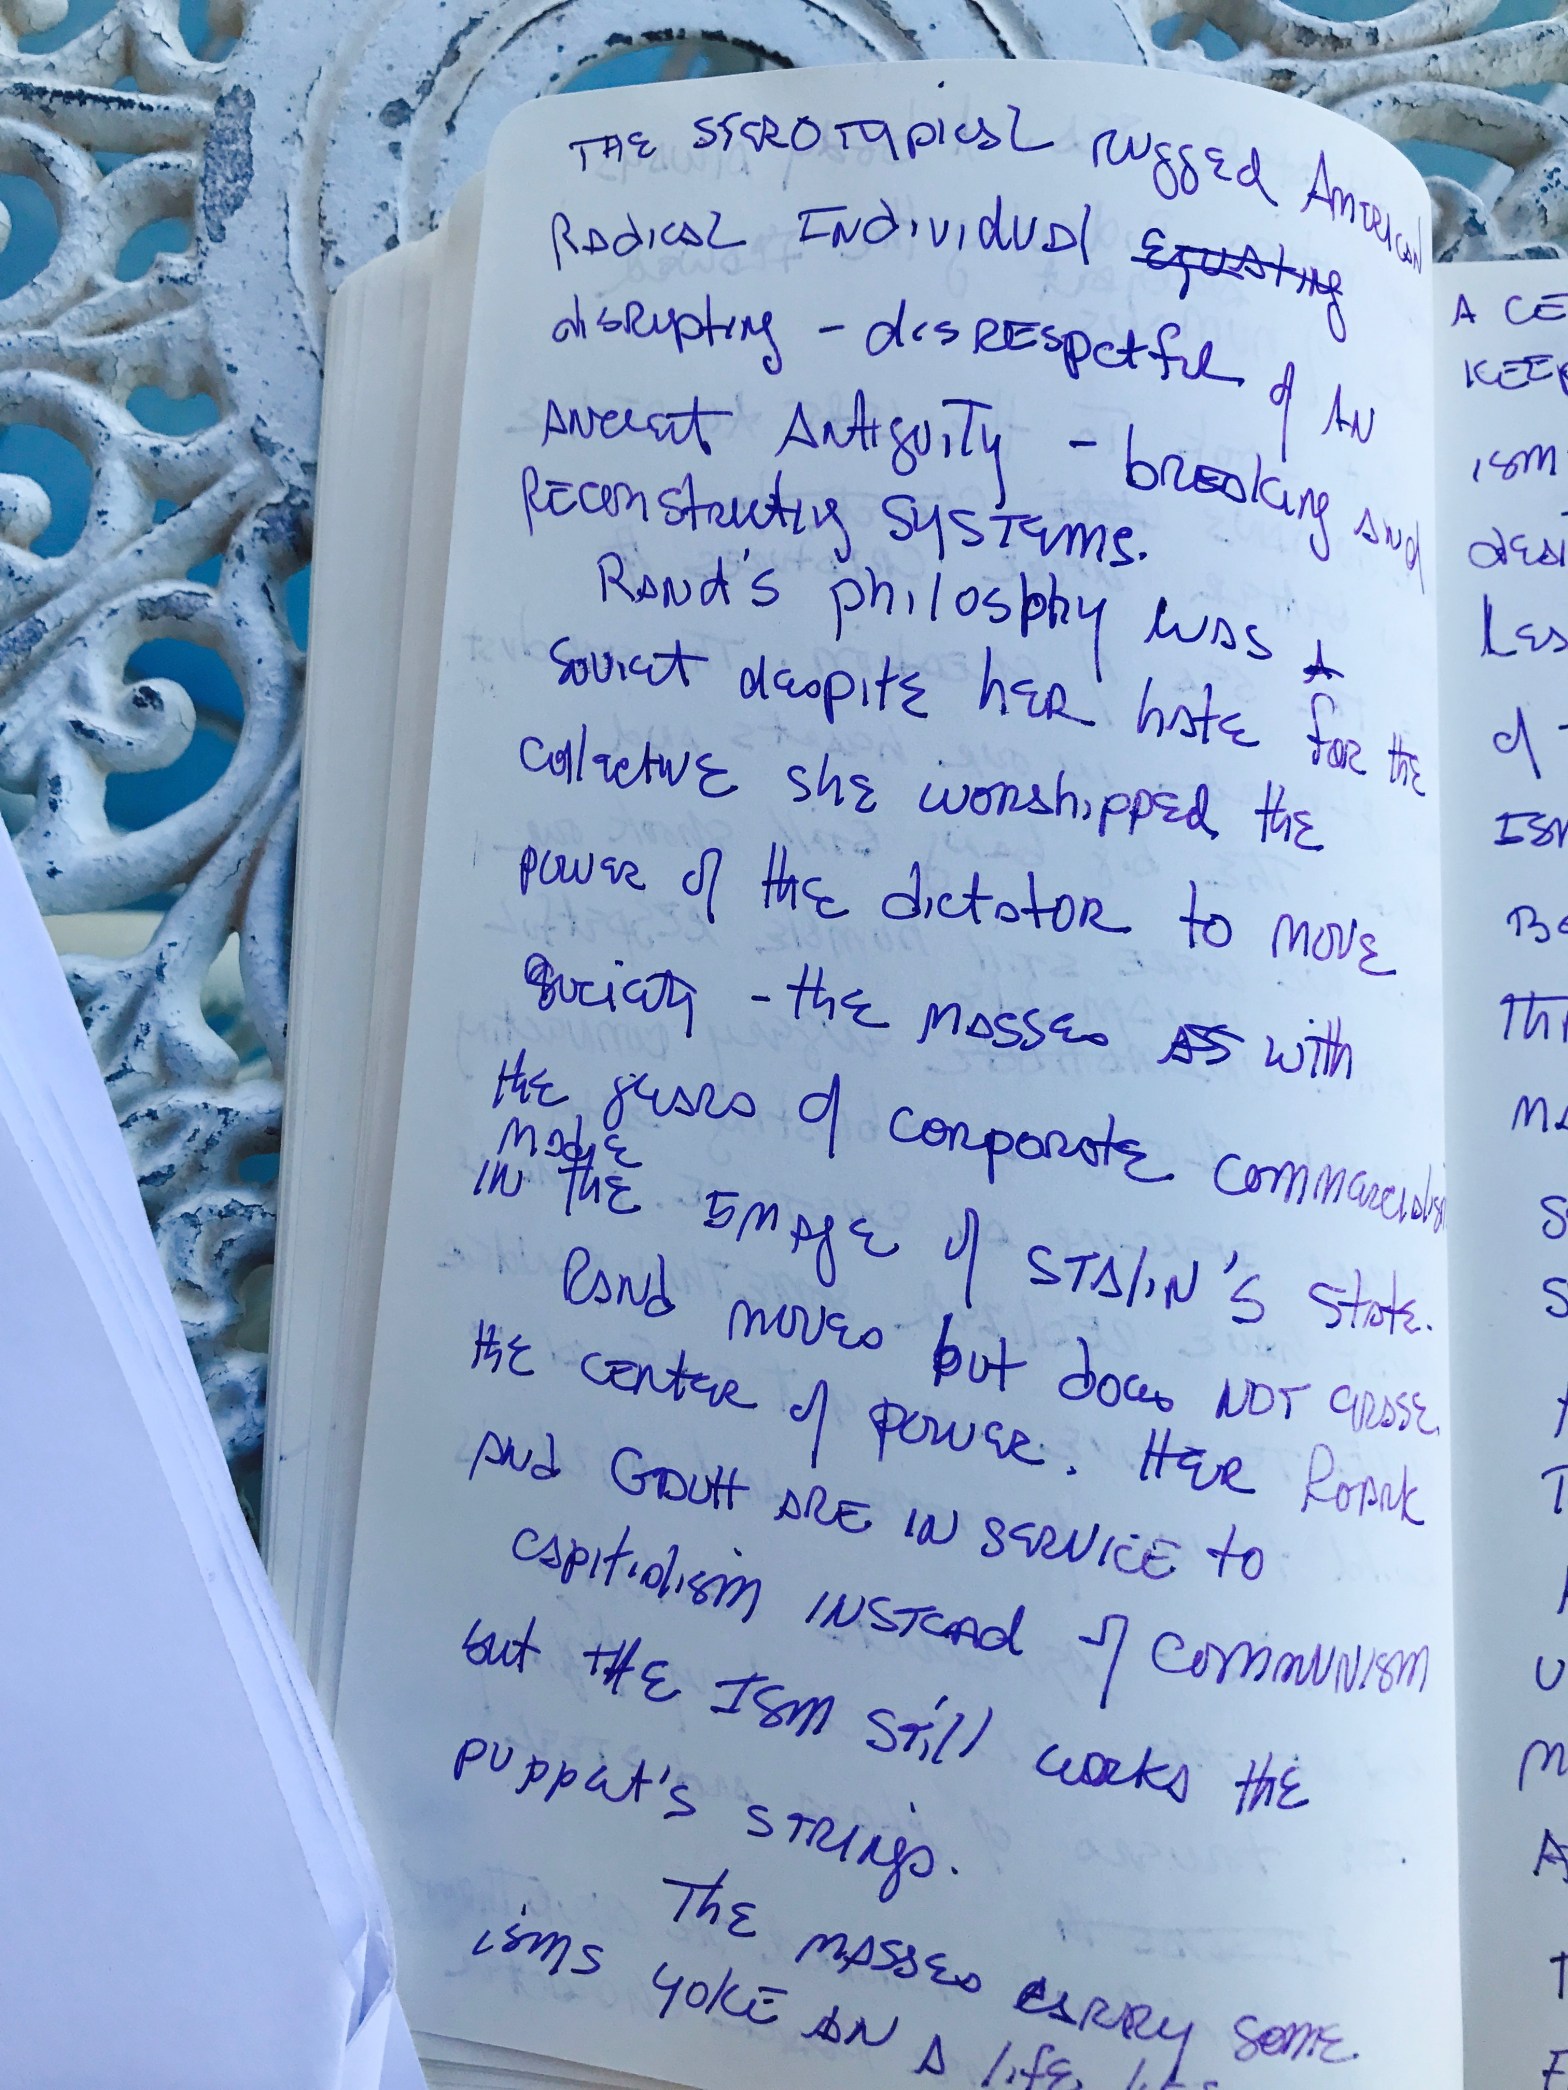 THE STEROTYPICAL RUGGED AMERICAN
RADICAL INDIVIDUAL EQUATING
disrupting - disRESpectful of AN
ANCIENT ANTIQUITY - bREAKING AND
RECONSTRUCTING SYSTEMS.
RAND'S philosphy WAS A
SOVIET despite HER hate for the
Collective she worshipped the
power of the dictator to move
Society - the masses AS with
the gears of corporate commercialism
made
IN THE IMAGE of STALIN'S State.
RAND moves but does NOT erase
the center of power. HER ROARK
AND GAULT ARE IN SERVICE to
capitialism INSTEAD of COMMUNISM
but the ISM still works the
puppet's STRINGS.
The MASSES CARRY some
isms yoke AN A life
A CE
KEEP
ism
desi
Les
of
ISM
BE
MA
S
S
T
U
M
A
T